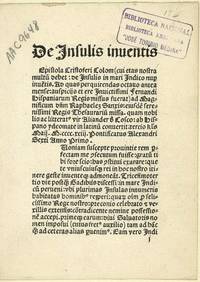 AAC9648
BIBLIOTECA NACIONAL
BIBLIOTECA AMERICANA
"JOSÉ TORIBIO MEDINA"
De Insulis inventis
Epistola Cristoferi Colom (cui etas nostra
multũ debet: de Insulis in mari Indico nup
inuẽtis. Ad quas perquirendas octauo antea
mense: auspicijs et ere Inuictissimi Fernandi
Hispaniarum Regis missus fuerat) ad Mag-
nificum dñm Raphaelez Sanxis: eiusdẽ sere-
nissimi Regis Thesaurariũ missa. quam nobi
lis ac litterat⁹ vir Aliander ẟ Cosco: ab Hispa
no ydeomate in latinũ conuertit: tercio kl̃s
Maij. M.cccc.xciij. Pontificatus Alexandri
Sexti Anno Primo.
Quoniam suscepte prouintie rem p
fectam me ꝯsecutum fuisse: gratũ ti
bi fore scio: has ꝯstitui exarare: que
te vniuscuiusꝗ rei in hoc nostro itine
re geste inuenteꝗ admoneãt. Tricesimoter
tio die postꝗ̃ Gadibus discessi: in mare Indi
cũ perueni: vbi plurimas Insulas innumeris
habitatas hominib⁹ reperi: quaꝝ oĩm p feli
cissimo Rege nostro: preconio celebrato et ve
xillis extensis: ꝯtradicente nemine possessio
nẽ accepi. primeꝗ earum: diui Saluatoris no
men imposui (cuius fret⁹ auxilio) tam ad hãc
ꝗ̃ ad ceteras alias puenim⁹. Eam vero Indi